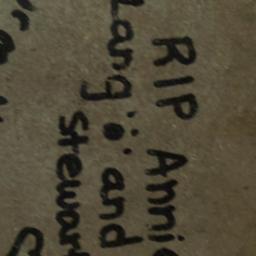 RIP Annie
Lang and
Stewar